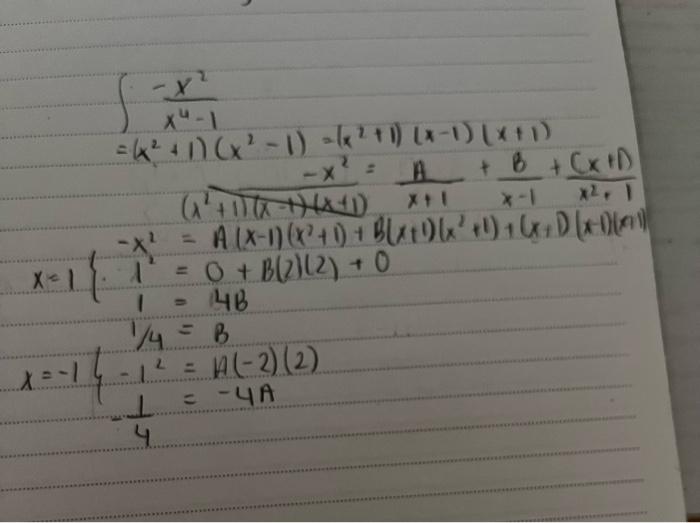 ∫ -x² / x⁴-1
= (x²+1)(x²-1) = (x²+1)(x-1)(x+1)
-x² / (x²+1)(x-1)(x+1) = A / x+1 + B / x-1 + Cx+D / x²+1
-x² = A(x-1)(x²+1) + B(x+1)(x²+1) + Cx+D(x-1)(x+1)
x=1 { 1² = 0 + B(2)(2) + 0
1 = 4B
1/4 = B
x=-1 { -1² = A(-2)(2)
1 = -4A
-1/4